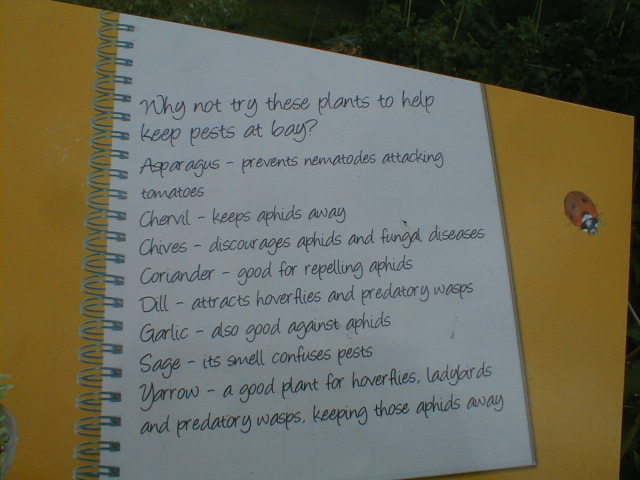 Why not try these plants to help
keep pests at bay?
Asparagus - prevents nematodes attacking
tomatoes
Chervil - keeps aphids away
Chives - discourages aphids and fungal diseases
Coriander - good for repelling aphids
Dill - attracts hoverflies and predatory wasps
Garlic - also good against aphids
Sage - its smell confuses pests
Yarrow - a good plant for hoverflies, ladybirds
and predatory wasps, keeping those aphids away